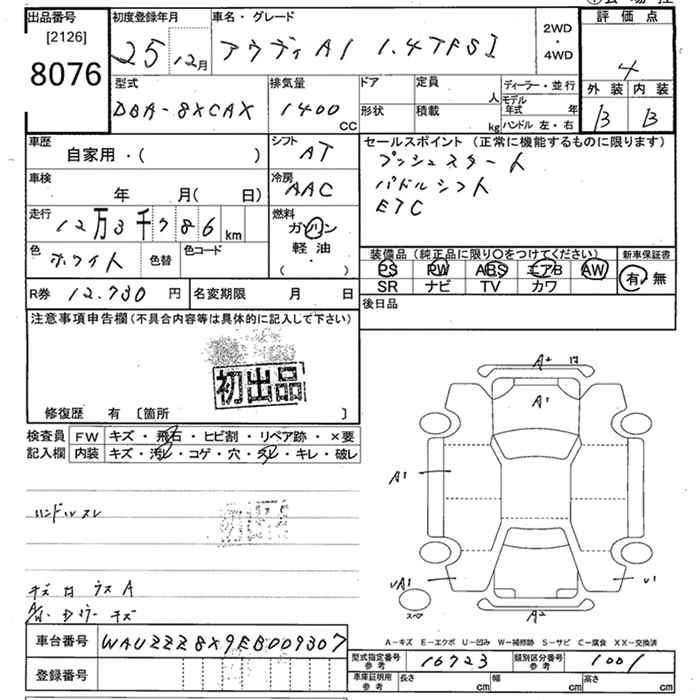 出品番号
[2126]
8076
初度登録年月
25 12月
車名・グレード
アウディA1 1.4TFSI
2WD
・
4WD
評価点
4
外装 内装
B B
型式
DBA-8XCAX
排気量
1400
CC
ドア
形状
定員
人
積載
kg
ディーラー・並行
モデル年式 年
ハンドル 左・右
車歴
自家用・( )
シフト
AT
車検
年 月( 日)
冷房
AAC
走行
12万3千786 km
燃料
ガソリン
軽油
( ・ )
色
ホワイト
色替
色コード
セールスポイント (正常に機能するものに限ります)
プッシュスタート
パドルシフト
ETC
装備品(純正品に限り〇をつけてください)
PS PW ABS エアB AW
SR ナビ TV カワ
新車保証書
有・無
R券 12,730 円
名変期限 月 日
後日品
注意事項申告欄(不具合内容等は具体的に記入して下さい)
初出品
修復歴 有 〔箇所 〕
検査員
記入欄
FW キズ・飛石・ヒビ割・リペア跡・×要
内装 キズ・汚れ・コゲ・穴・スレ・キレ・破レ
ハンドルスレ
初出品
キズ
A
キズ
A1
A1
A2
スペア
A-キズ E-エクボ U-凹み W-補修跡 S-サビ C-腐食 XX-交換済
車台番号 WAUZZZ8X9EB009307
登録番号
型式指定番号
参考
16723
類別区分番号
参考
1001
車庫証明用
参考
長さ cm 幅 cm 高さ cm